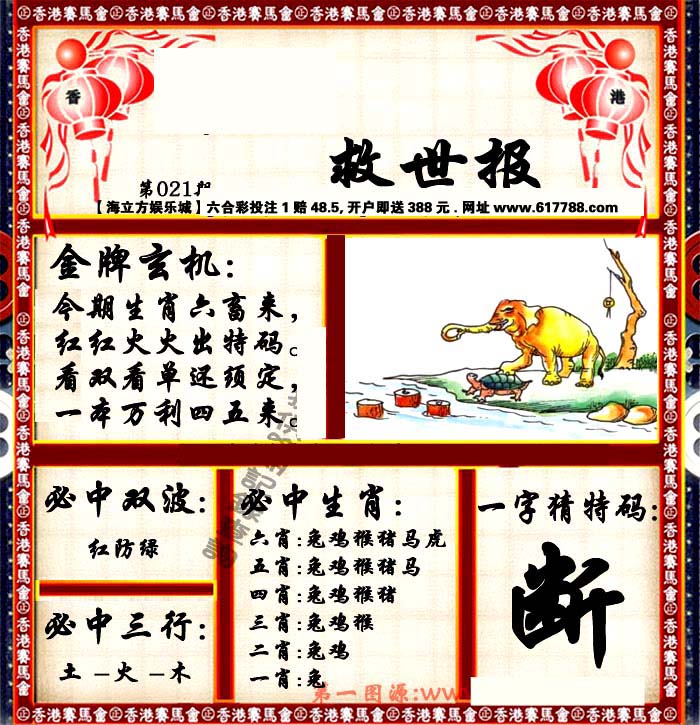 香港賽馬會 香港賽馬會 香港賽馬會 香港賽馬會 香港賽馬會 香港賽馬會 香港賽馬會
香
港
救世报
第021期
【海立方娱乐城】六合彩投注1赔48.5,开户即送388元.网址www.617788.com
金牌玄机:
今期生肖六畜来,
红红火火出特码。
看双看单还须定,
一本万利四五来。
必中双波:
红防绿
必中三行:
土-火-木
必中生肖:
六肖:兔鸡猴猪马虎
五肖:兔鸡猴猪马
四肖:兔鸡猴猪
三肖:兔鸡猴
二肖:兔鸡
一肖:兔
一字猜特码:
断
第一图源:www